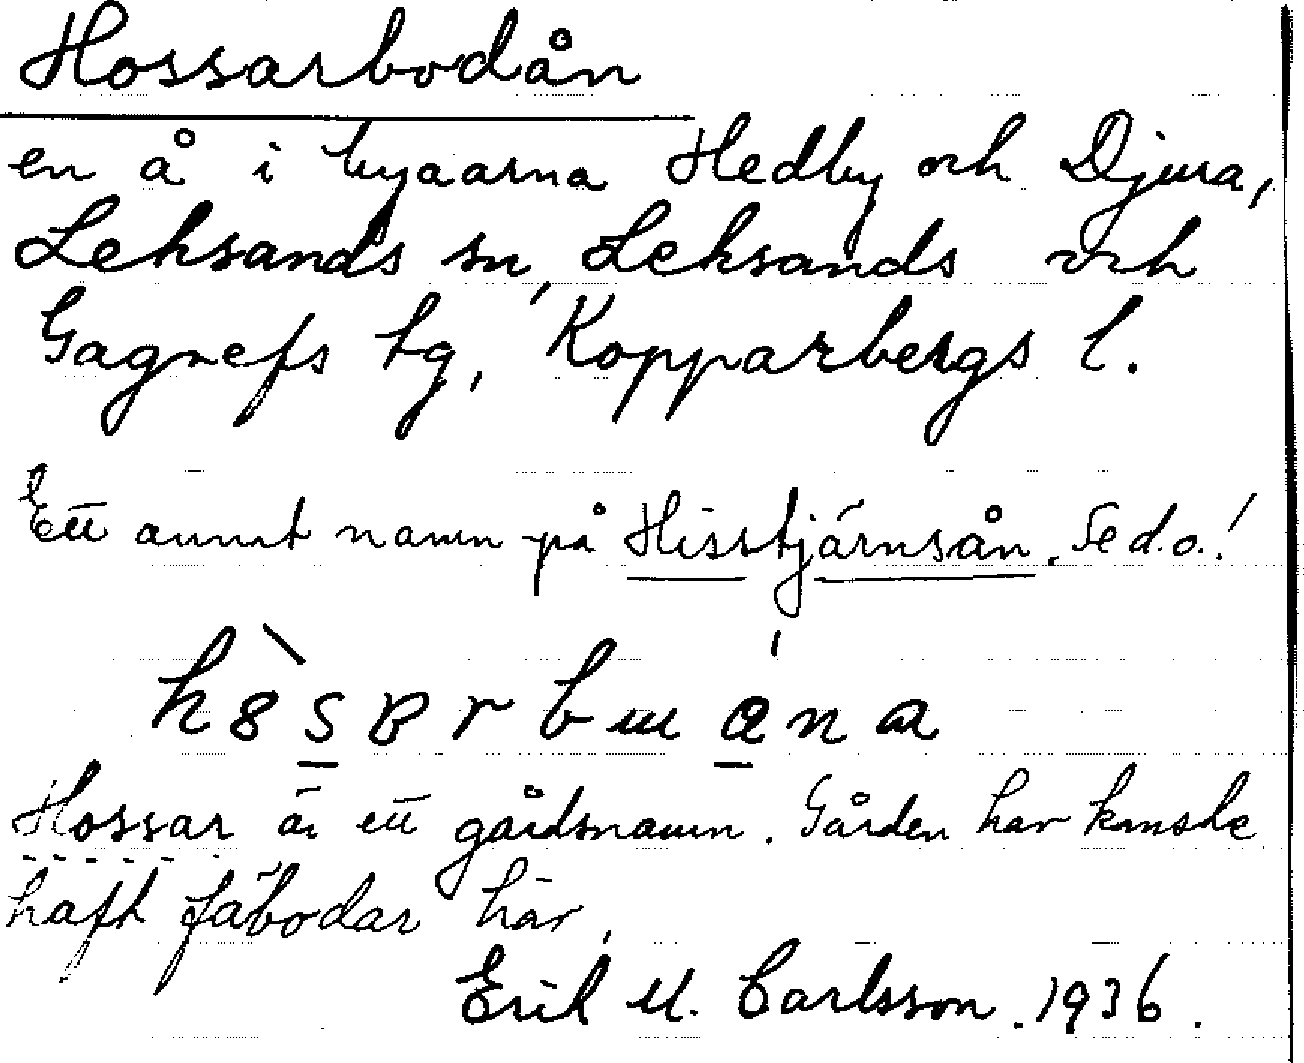 Hossarbodån
en å i byaarna Hedby och Djura,
Leksands sn, Leksands och
Gagnefs tg, Kopparbergs l.
Ett annat namn på Hisstjärnsån. Se d.o.!
Hossar är ett gårdsnamn. Gården har kanske
haft fäbodar här.
Erik M. Carlsson. 1936.